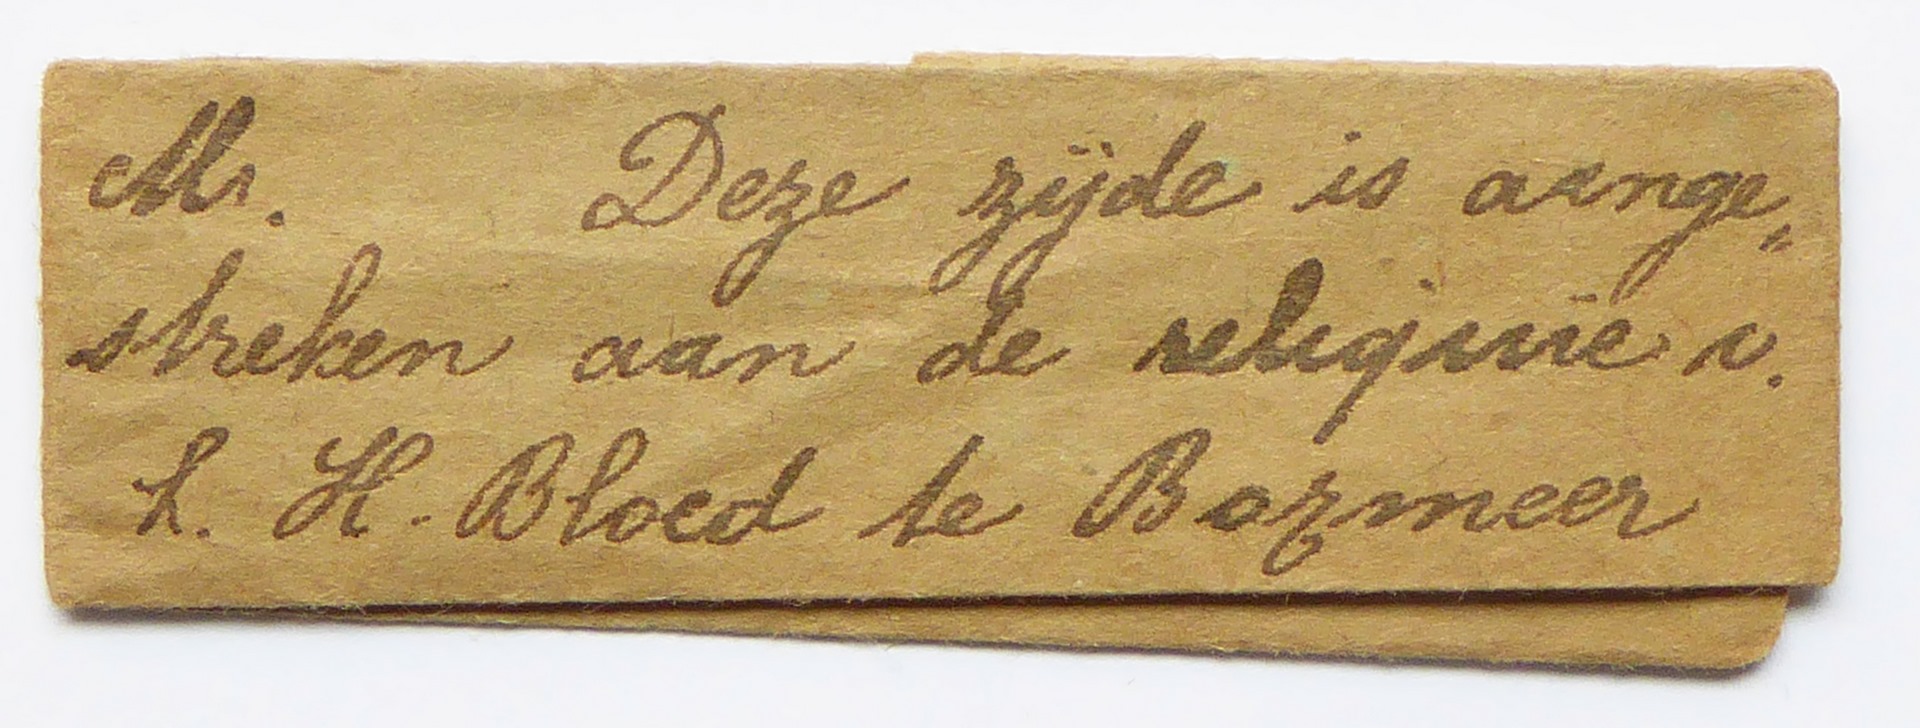 Mr. Deze zijde is aange„
streken aan de reliquie v.
h. H. Bloed te Boxmeer